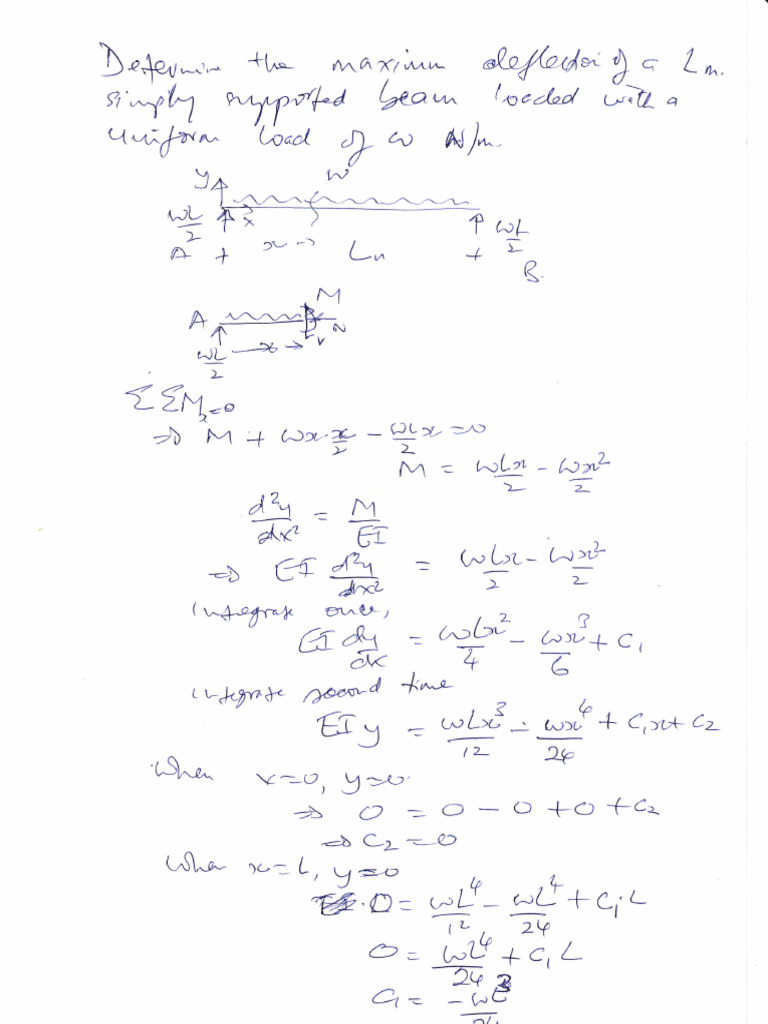 Determine the maximum deflection of a L m.
simply supported beam loaded with a
uniform load of w N/m.
y w
wL/2 x wL/2
A x → L m B
M
A N
wL/2 x → V
Σ ΣM_x=0
⇒ M + wx·x/2 − wLx/2 = 0
M = wLx/2 − wx²/2
d²y/dx² = M/EI
⇒ EI d²y/dx² = wLx/2 − wx²/2
Integrate once,
EI dy/dx = wLx²/4 − wx³/6 + C₁
Integrate second time
EI y = wLx³/12 − wx⁴/24 + C₁x + C₂
When x=0, y=0.
⇒ 0 = 0 − 0 + 0 + C₂
⇒ C₂ = 0
When x=L, y=0
0 = wL⁴/12 − wL⁴/24 + C₁L
0 = wL⁴/24 + C₁L
C₁ = −wL³/24